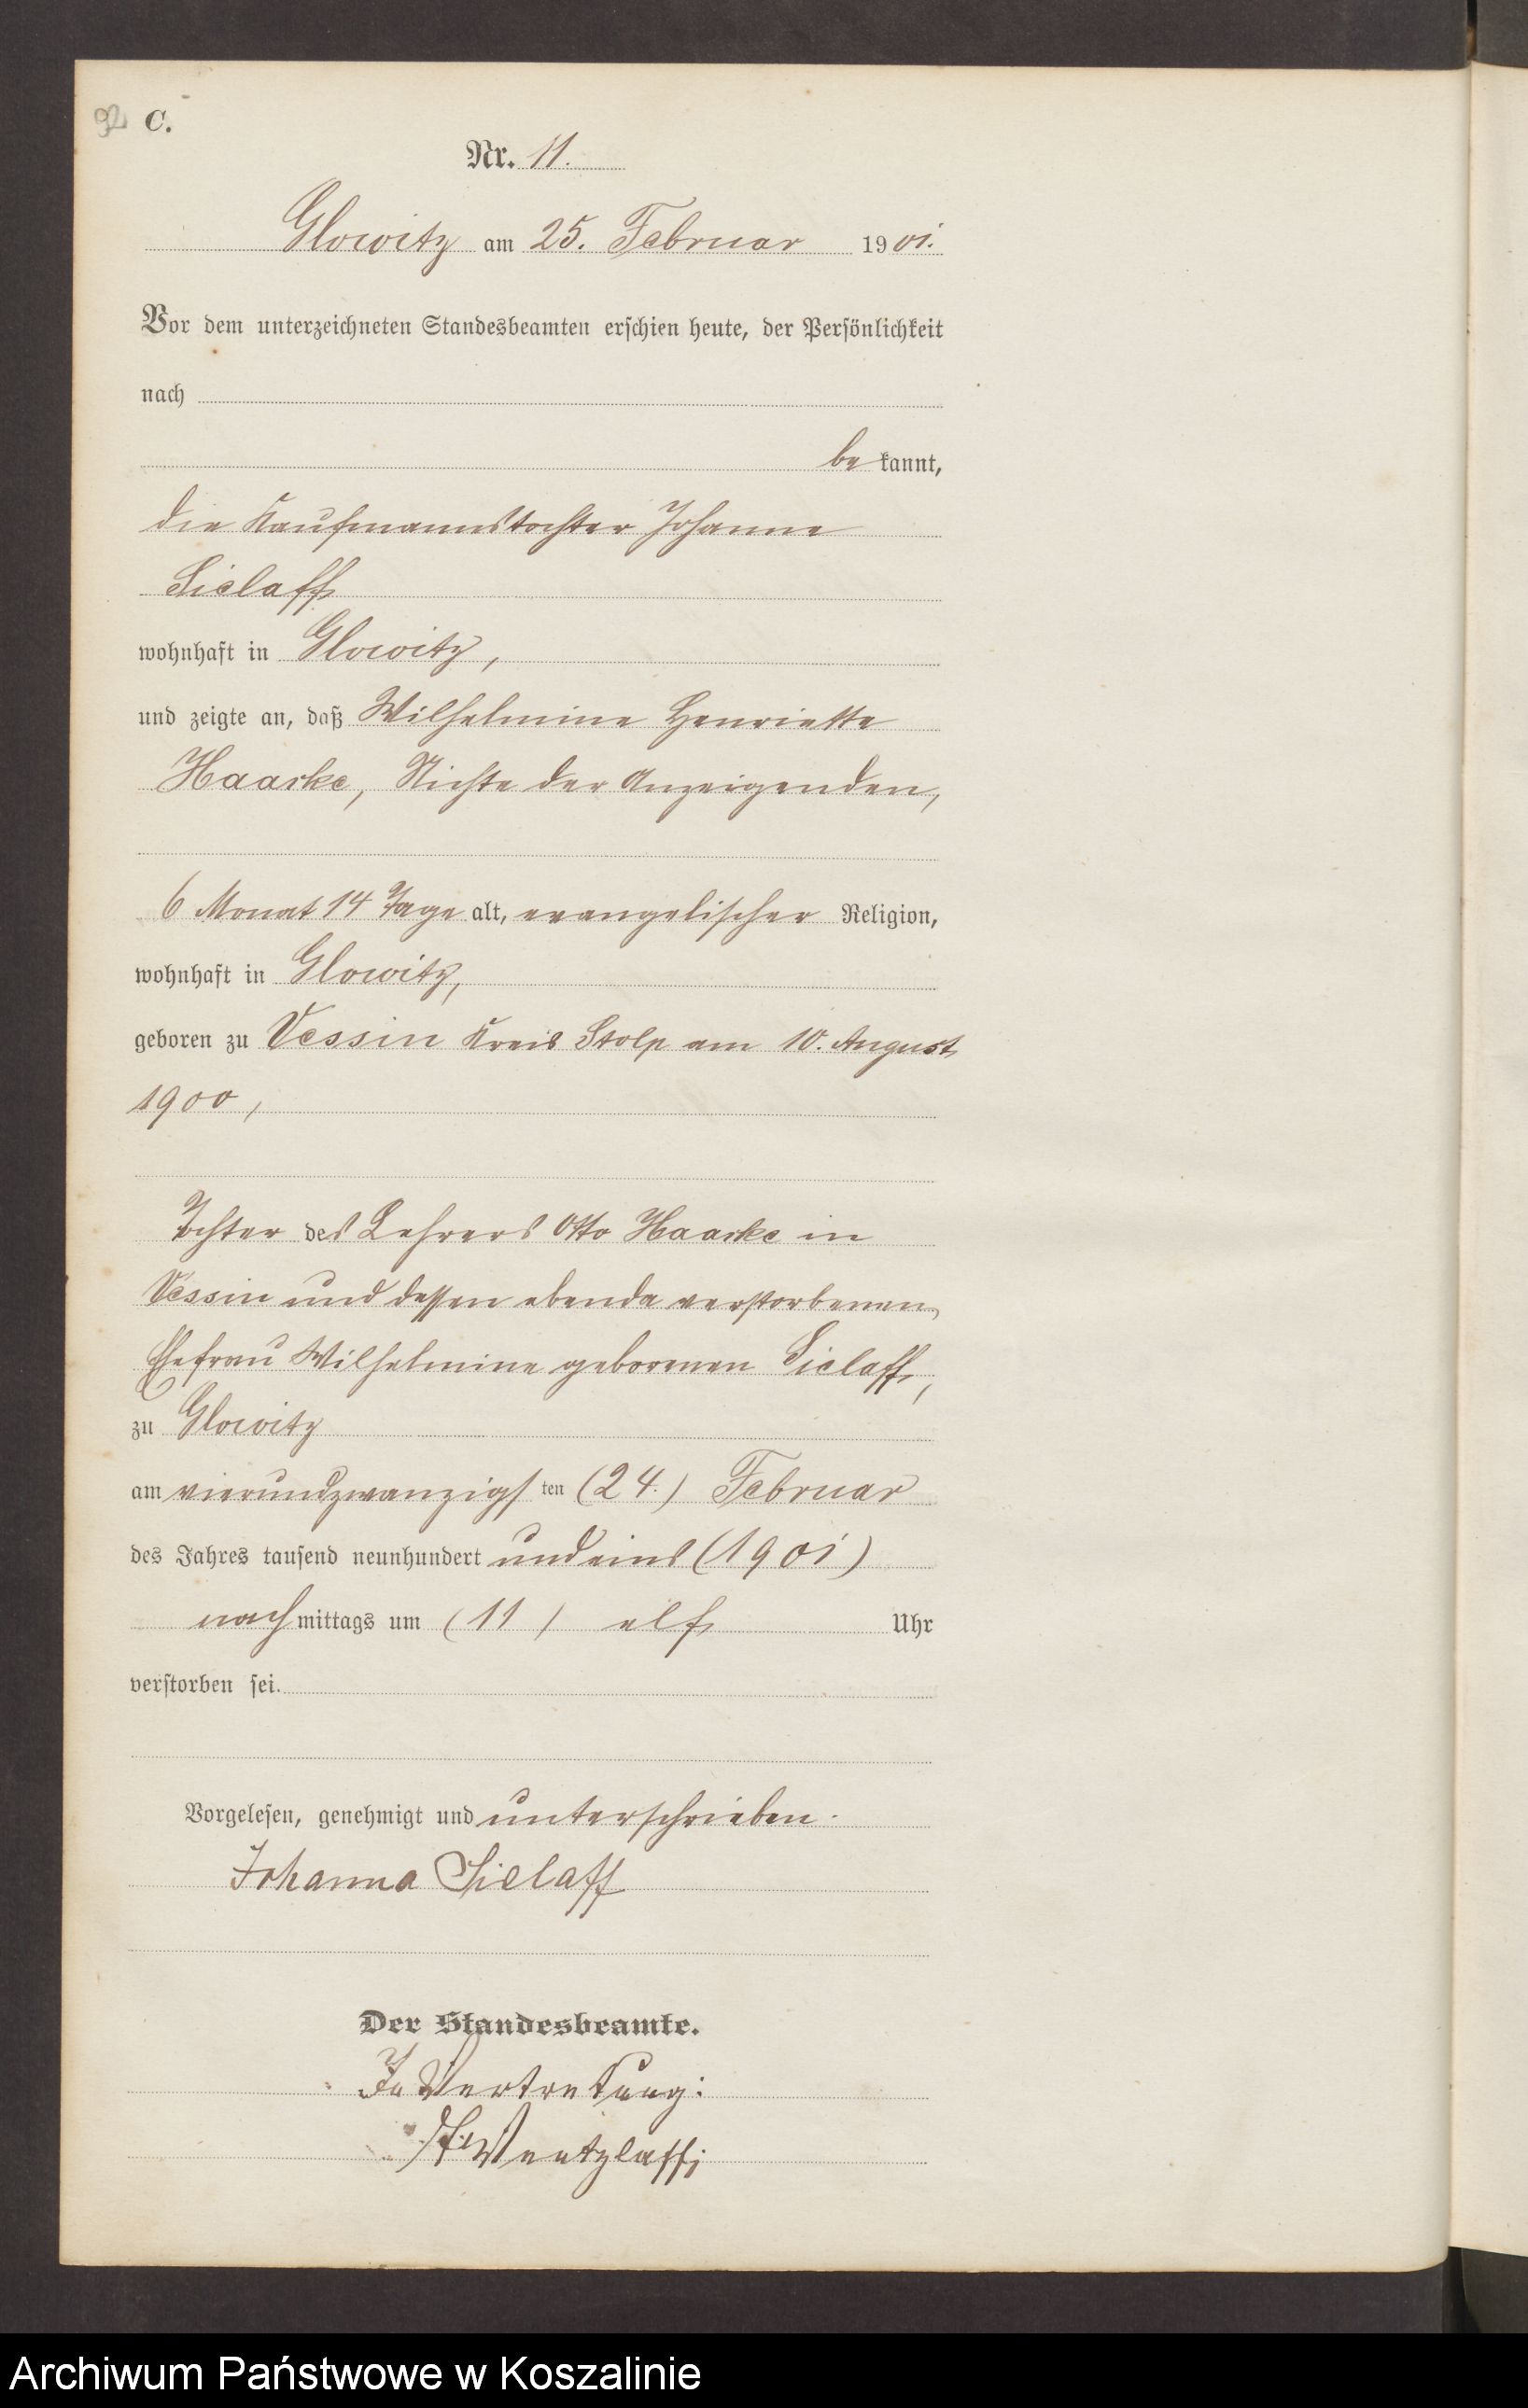 92 C.
Nr. 11.
Glowitz am 25. Februar 1901.
Vor dem unterzeichneten Standesbeamten erschien heute, der Persönlichkeit
nach
be kannt,
die Kaufmannstochter Johanne
Sielaff
wohnhaft in Glowitz,
und zeigte an, daß Wilhelmine Henriette
Haaske, Nichte der Anzeigenden,
6 Monat 14 Tage alt, evangelischer Religion,
wohnhaft in Glowitz,
geboren zu Vessin Kreis Stolp am 10. August
1900,
Tochter des Lehrers Otto Haaske in
Vessin und dessen ebenda verstorbenen
Ehefrau Wilhelmine geborenen Sielaff,
zu Glowitz
am vierundzwanzigsten (24.) Februar
des Jahres tausend neunhundert undeins (1901)
nachmittags um (11) elf Uhr
verstorben sei.
Vorgelesen, genehmigt und unterschrieben.
Johanna Sielaff
Der Standesbeamte.
In Vertretung:
Wentzlaff;
Archiwum Państwowe w Koszalinie